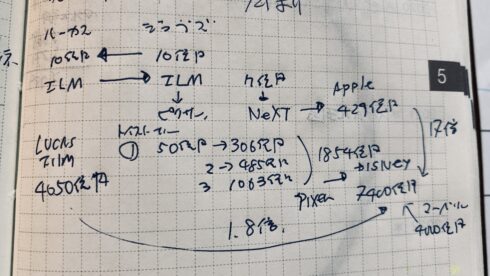 ルーカス ジョブズ
10億円 ← 10億円
ILM → ILM 7億円 Apple
5
↓ ↓
ピクサー NeXT → 429億円
トイストーリー
① 50億円 → 306億円
2 → 485億円
3 1063億円
1854億円
17倍
LUCAS
FILM
4050億円
→ DISNEY
Pixar 7400億円
400億円
1.8倍